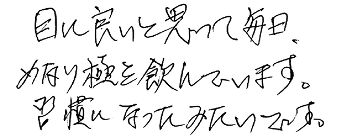 目に良いと思って毎日、
めなり極を飲んでいます。
習慣になったみたいです。